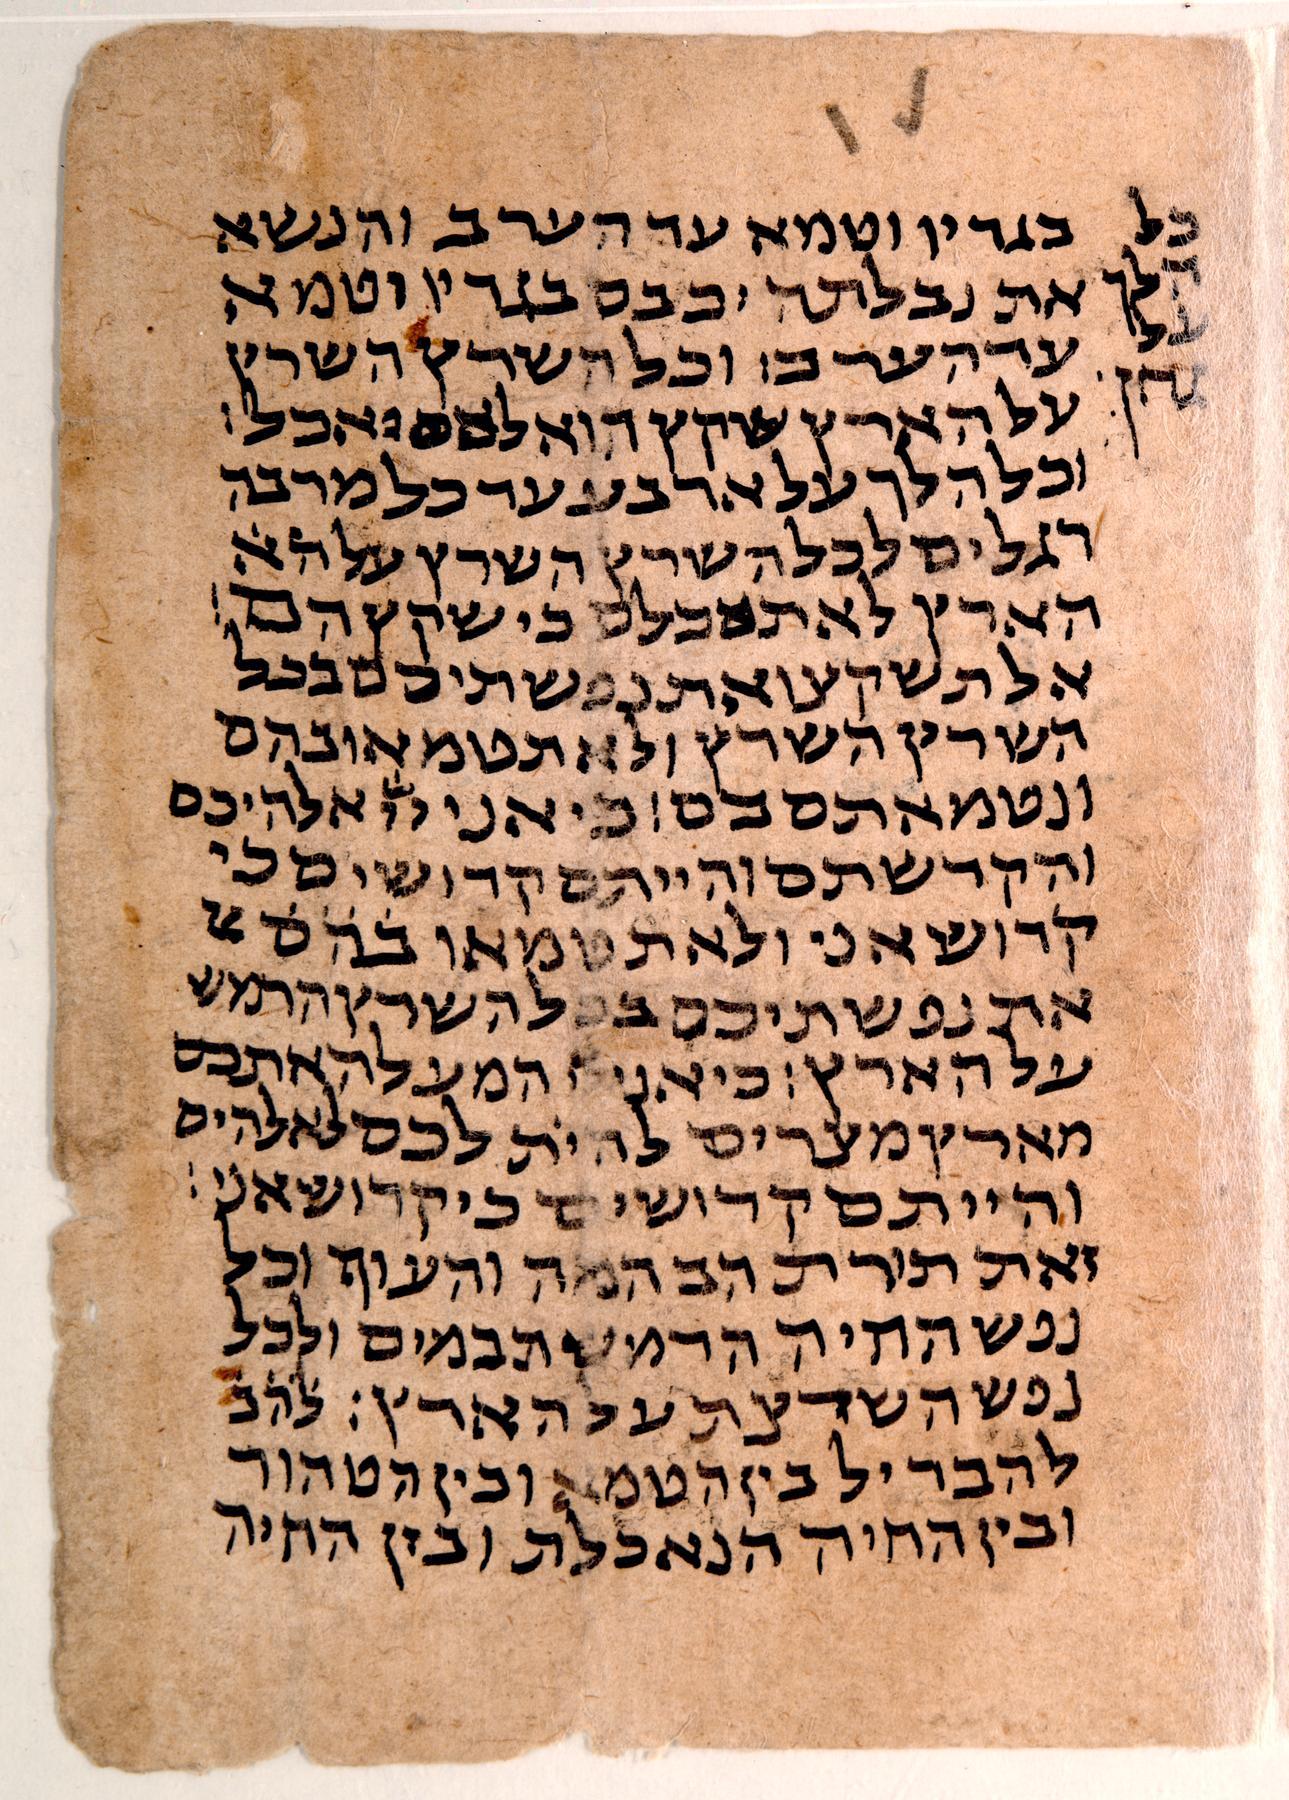 בגדיו וטמא עד הערב והנשא
את נבלתה יכבס בגדיו וטמא
עד הערב: וכל השרץ השרץ
על הארץ שקץ הוא לא
וכל הלך על ארבע עד כל מרבה
רגלים לכל השרץ השרץ על הא
הארץ לא כי שקץ הם:
אל תשקצו את נפשתיכם בכל
השרץ השרץ ולא תטמאו בהם
ונטמאתם בם: כי אני אלהיכם
והקדשתם והייתם קדושים כי
קדוש אני ולא תטמאו בהם
את נפשתיכם בכל השרץ הרמש
על הארץ: כי אני המעלה אתכם
מארץ מצרים להית לכם לאלהים
והייתם קדושים כי קדוש אני:
זאת תורת הבהמה והעוף וכל
נפש החיה הרמשת במים ולכל
נפש השרצת על הארץ: להב
להבדיל בין הטמא ובין הטהור
ובין החיה הנאכלת ובין החיה
כל
הלך
על
גחון